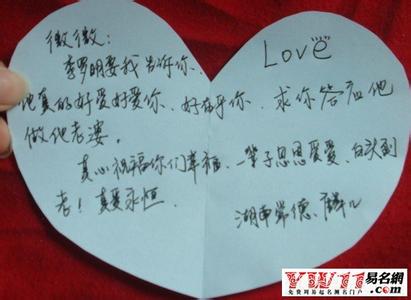 微微：
李罗明要我告诉你、
他真的好爱好爱你、好在乎你、求你答应他
做他老婆。
真心祝福你们幸福、一辈子恩恩爱爱、白头到
老！真爱永恒．
Love
湖南常德、
YW11易名網
免费周易起名测名门户
.com